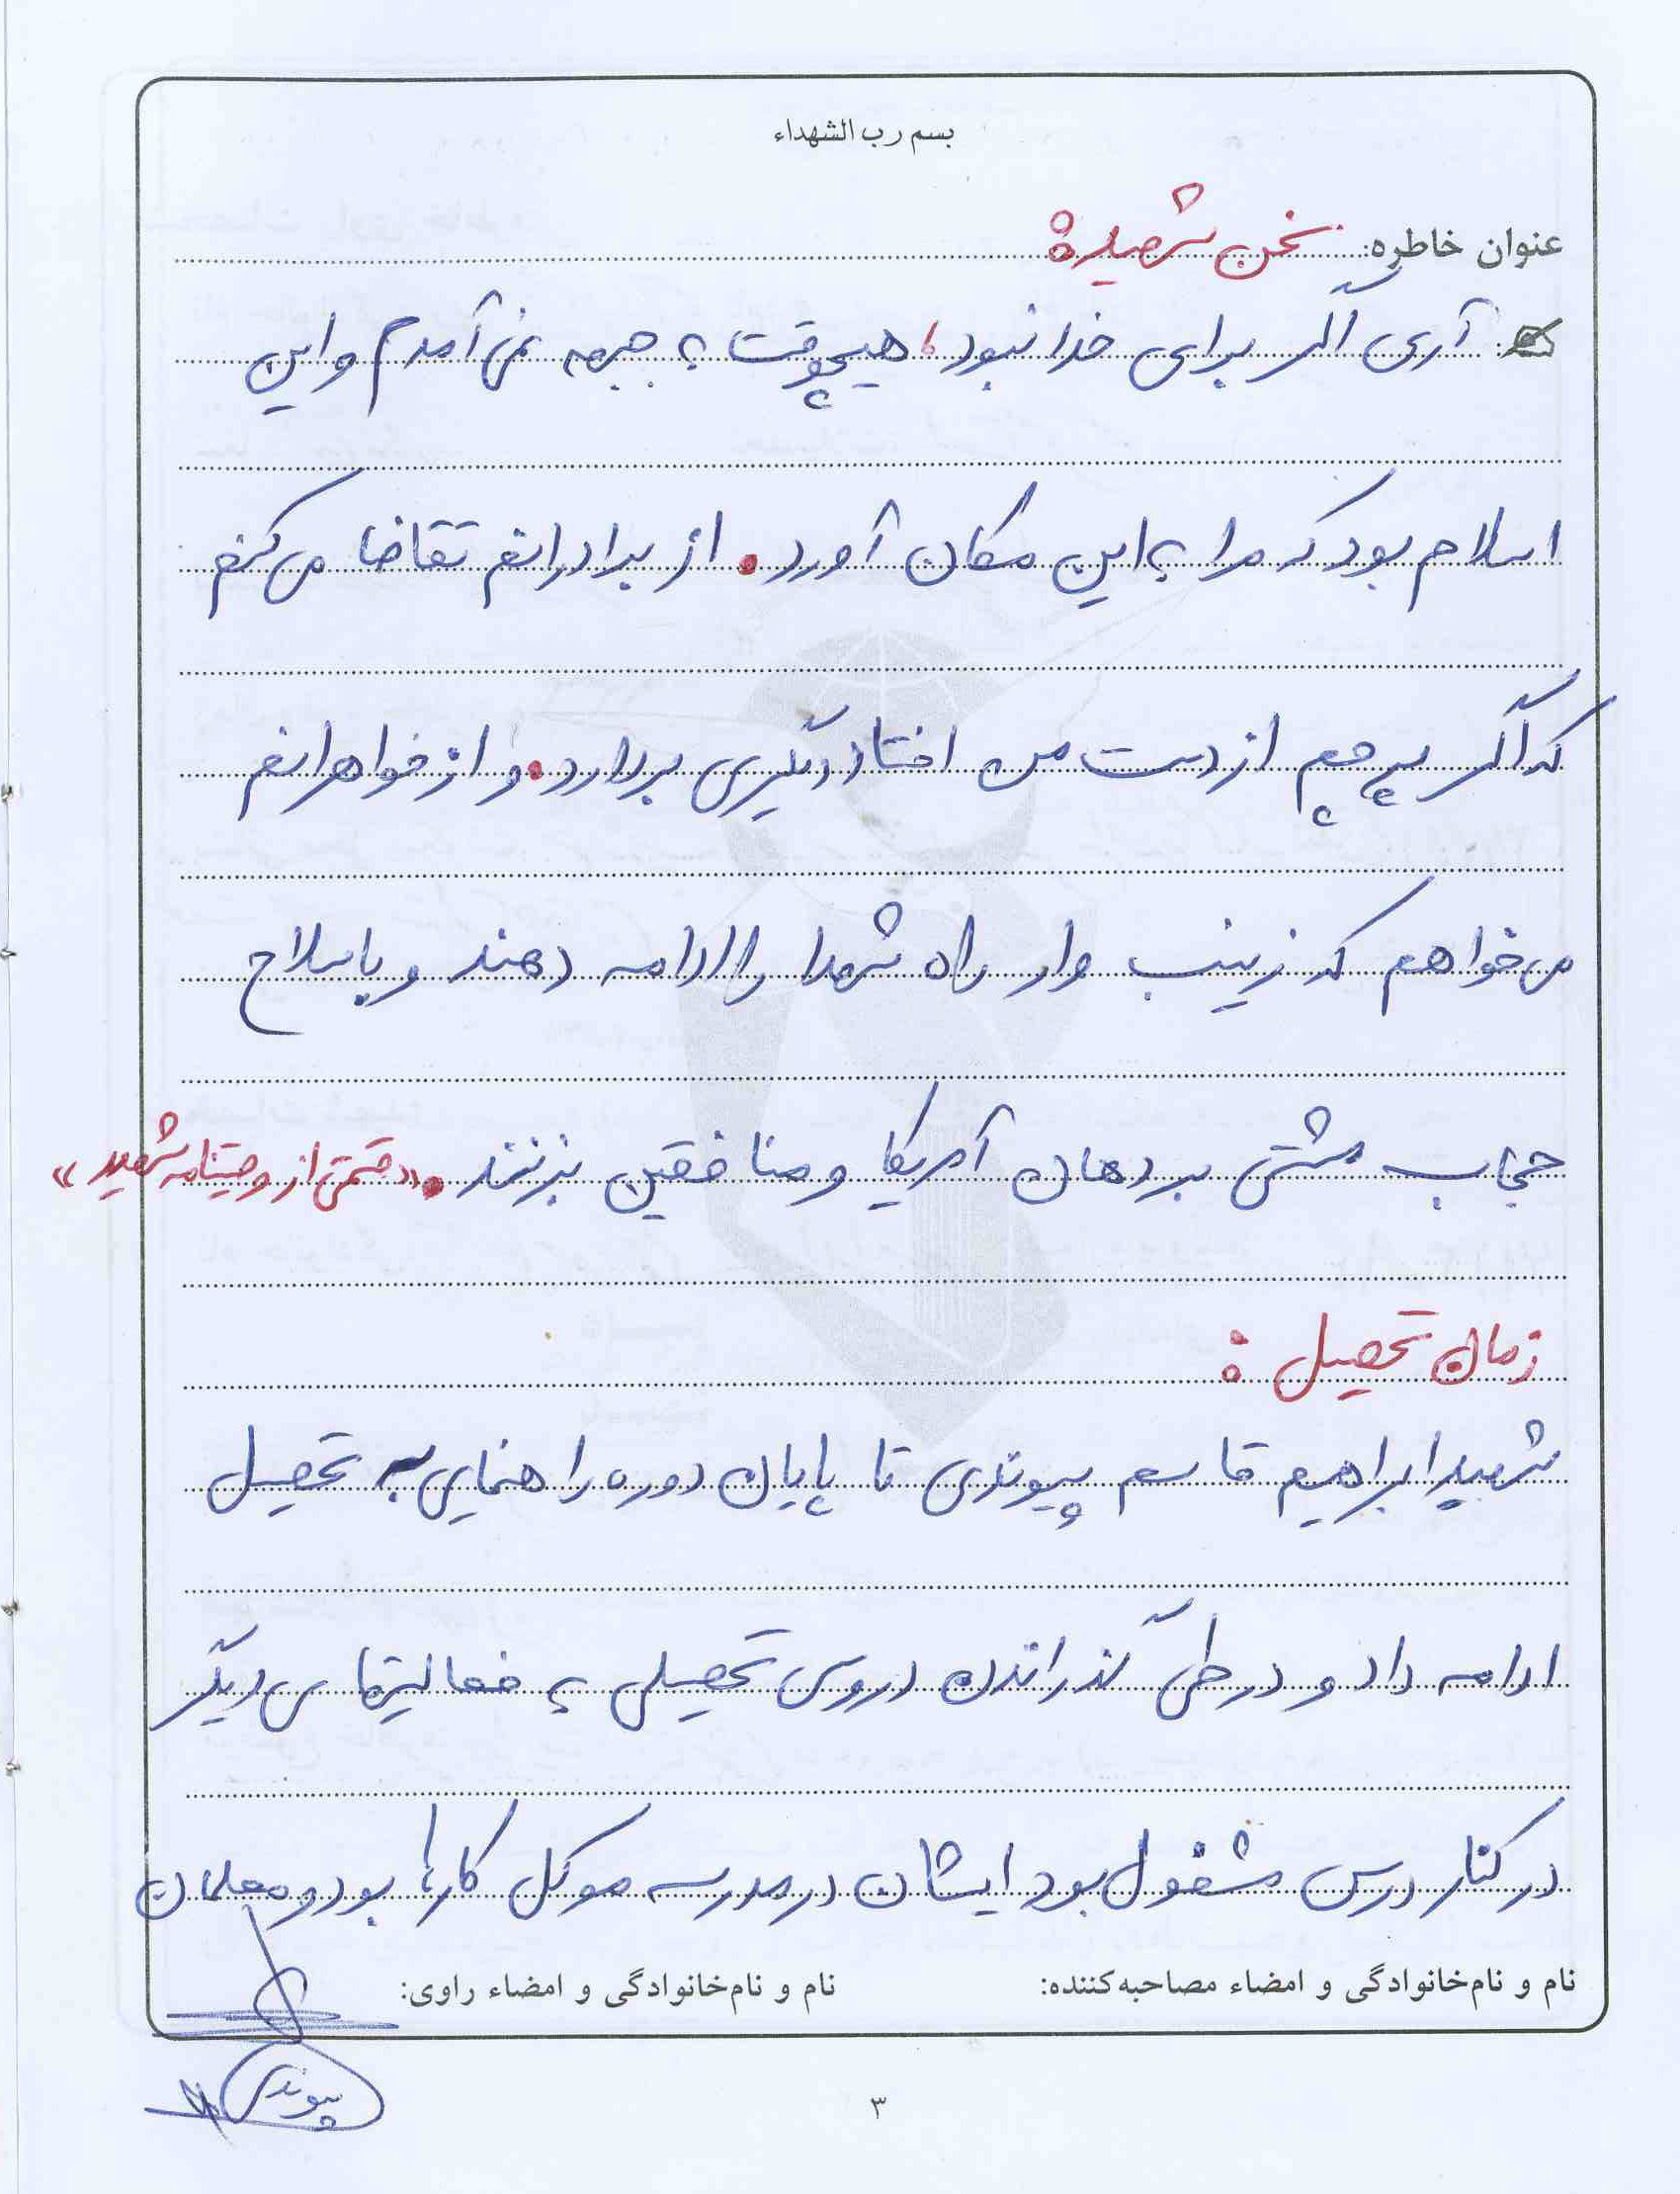 بسم رب الشهداء
عنوان خاطره: سخن شهید:
آری اگر برای خدا نبود، هیچوقت به جبهه نمی‌آمدم و این
اسلام بود که مرا به این مکان آورد. از برادرانم تقاضا می‌کنم
که اگر پرچم از دست من افتاد دیگری بردارد. و از خواهرانم
می‌خواهم که زینب وار راه شهدا را ادامه دهند و با سلاح
حجاب مشتی بر دهان آمریکا و منافقین بزنند. «قسمتی از وصیتنامه شهید»
زمان تحصیل:
شهید ابراهیم قاسم پیوندی تا پایان دوره راهنمایی به تحصیل
ادامه داد و در طی گذراندن دروس تحصیلی به فعالیتهای دیگر
در کنار درس مشغول بود ایشان در مدرسه موکل کارها بود و معلمان
نام و نام‌خانوادگی و امضاء مصاحبه‌کننده: نام و نام‌خانوادگی و امضاء راوی:
پیوندی
۳